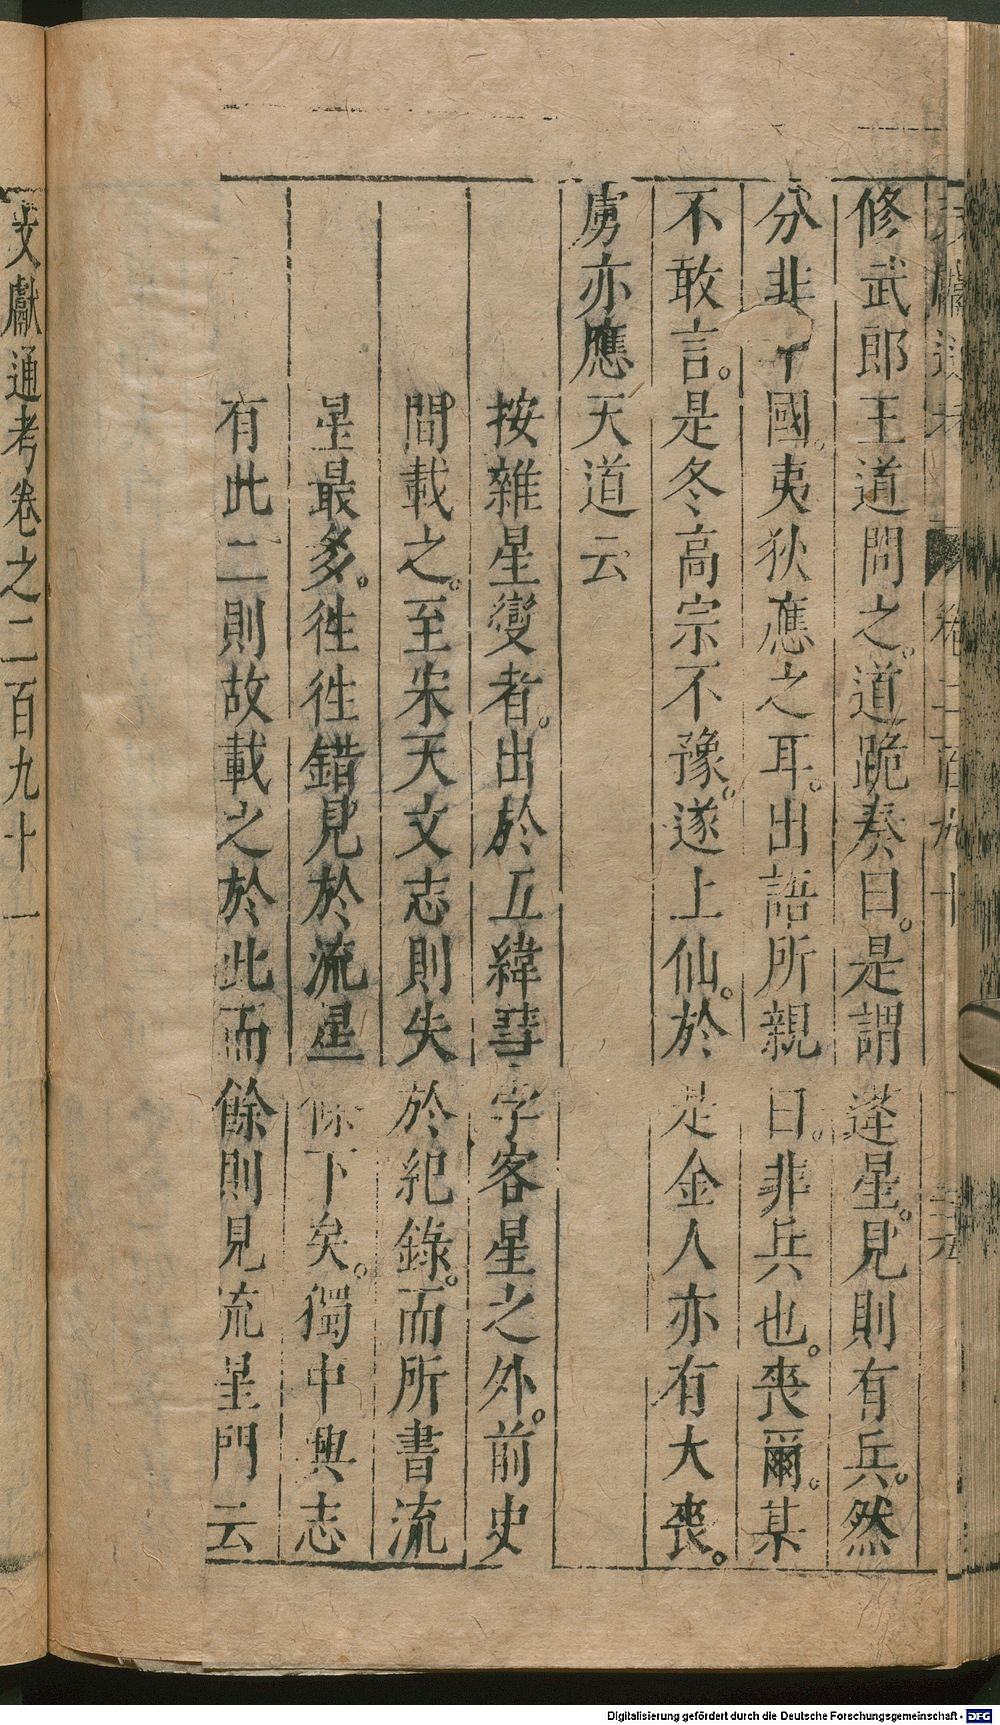 修武郎王道問之。道跪奏曰。是謂蓬星。見則有兵。然
分非中國。夷狄應之耳。出語所親曰。非兵也。喪爾。某
不敢言。是冬高宗不豫。遂上仙。於是金人亦有大喪。
虜亦應天道云
按雜星變者。出於五緯彗孛客星之外。前史
間載之。至宋天文志則失於紀錄。而所書流
星最多。徃徃錯見於流星條下矣。獨中興志
有此二則故載之於此而餘則見流星門云
文獻通考卷之二百九十一
Digitalisierung gefördert durch die Deutsche Forschungsgemeinschaft - DFG